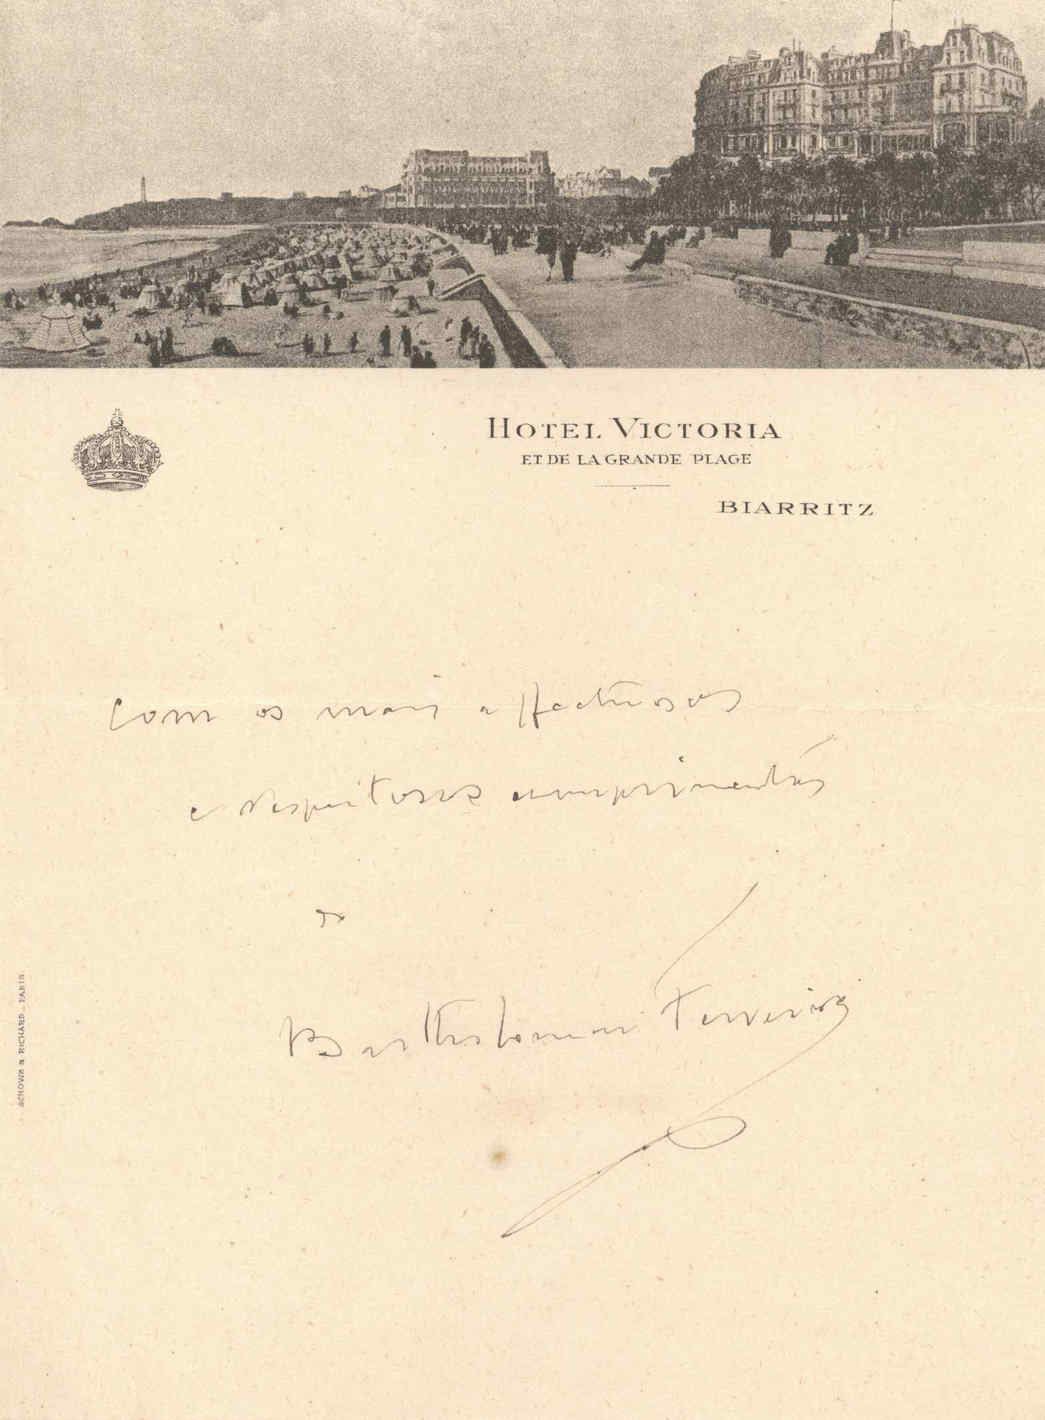 HOTEL VICTORIA
ET DE LA GRANDE PLAGE
BIARRITZ
Com os mais affectuosos
e respeitosos cumprimentos
de
Bartholomeu Ferreira
SCHOWB & RICHARD _ PARIS